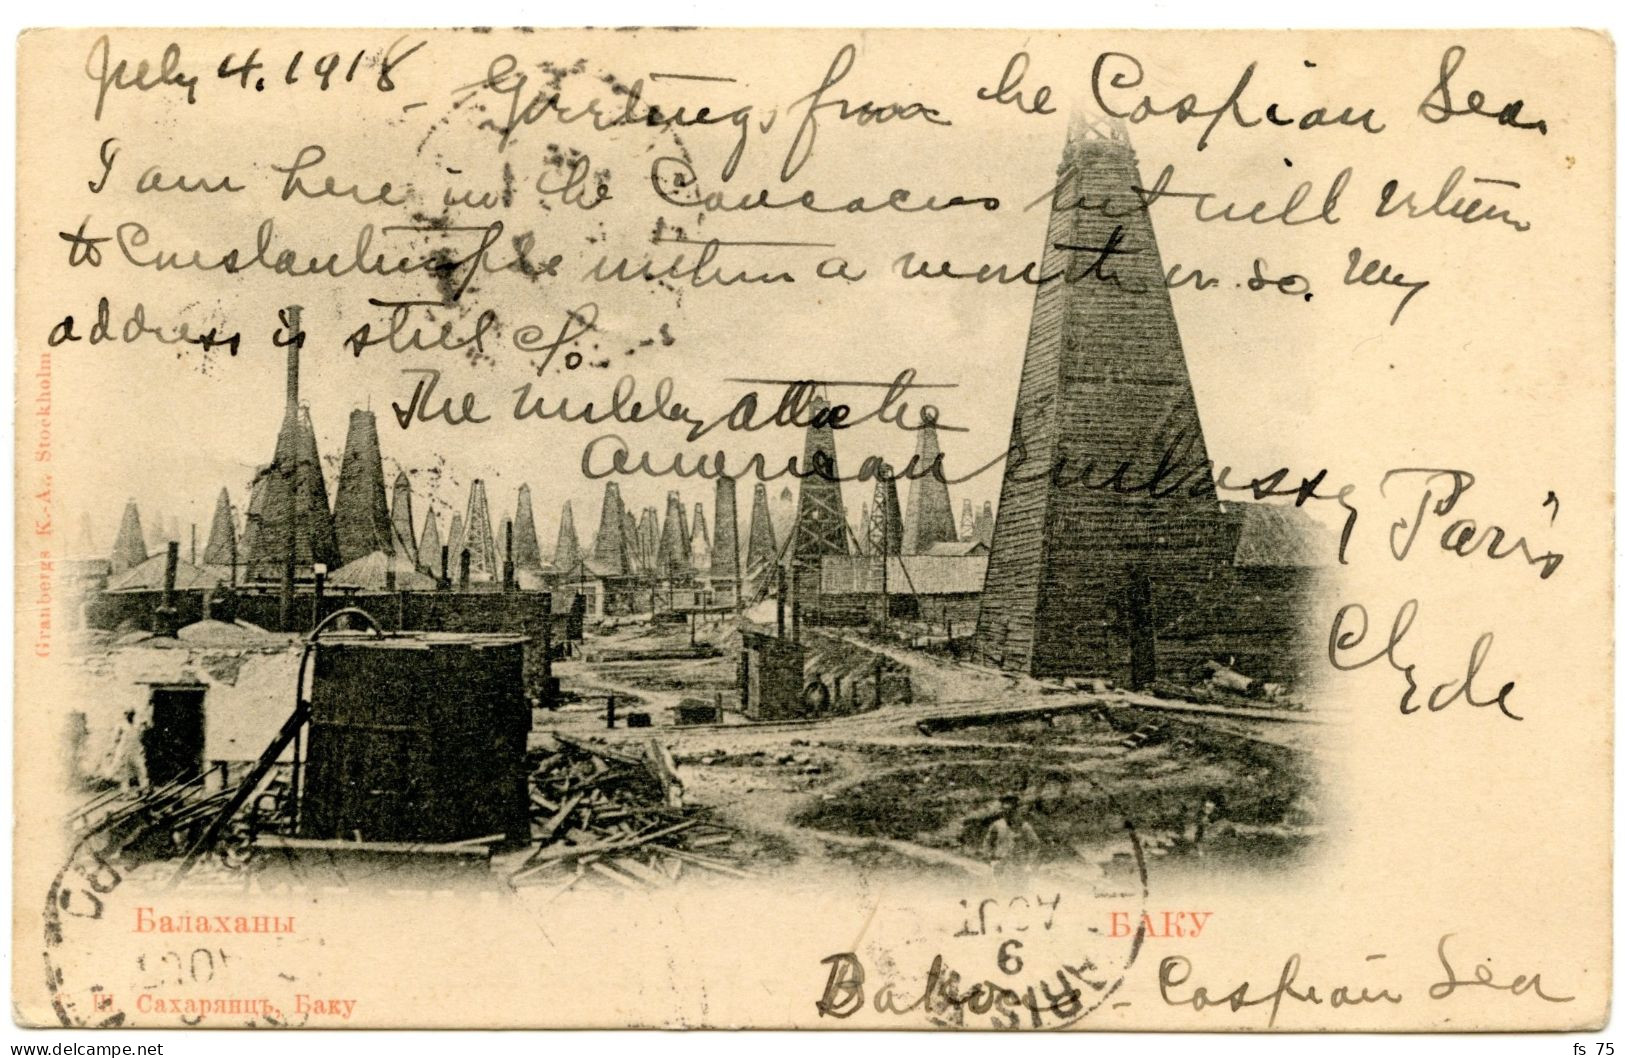 July 4. 1918 - Greetings from the Caspian Sea.
I am here in the Caucacus but will return
to Constantinople within a month or so. My
address is still c/o
The Military Attache
American Embassy
Paris
Clyde
Granbergs K.-A., Stockholm
Балаханы
БАКУ
Ш. Сахарянцъ, Баку
9
AOUT
PARIS
Bakou - Caspian Sea
delcampe.net
fs_75